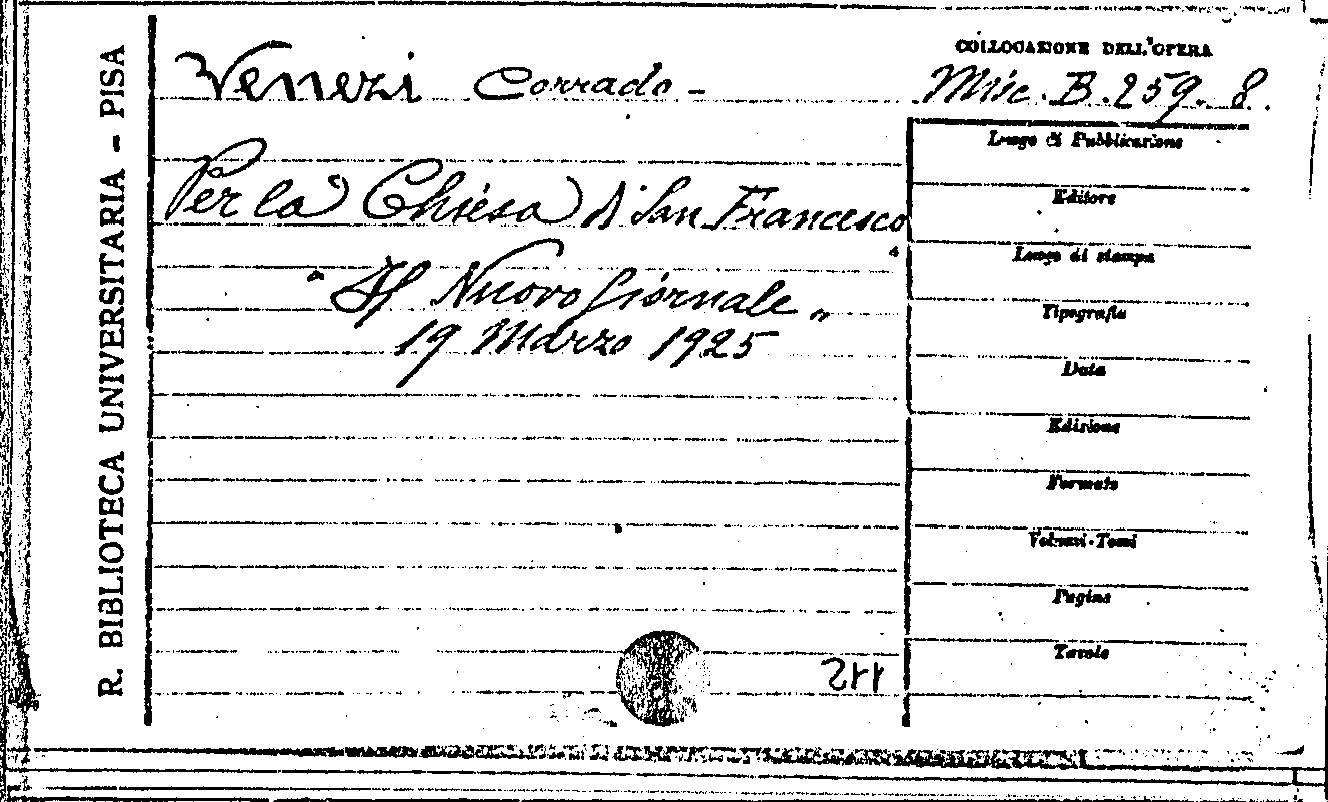 R. BIBLIOTECA UNIVERSITARIA - PISA
Venezi Corrado -
Per la Chiesa di San Francesco
"Il Nuovo Giornale"
19 Marzo 1925
COLLOCAZIONE DELL'OPERA
Misc. B. 259. 8.
Luogo di Pubblicazione
Editore
Luogo di stampa
Tipografia
Data
Edizione
Formato
Volumi-Tomi
Pagine
Tavole